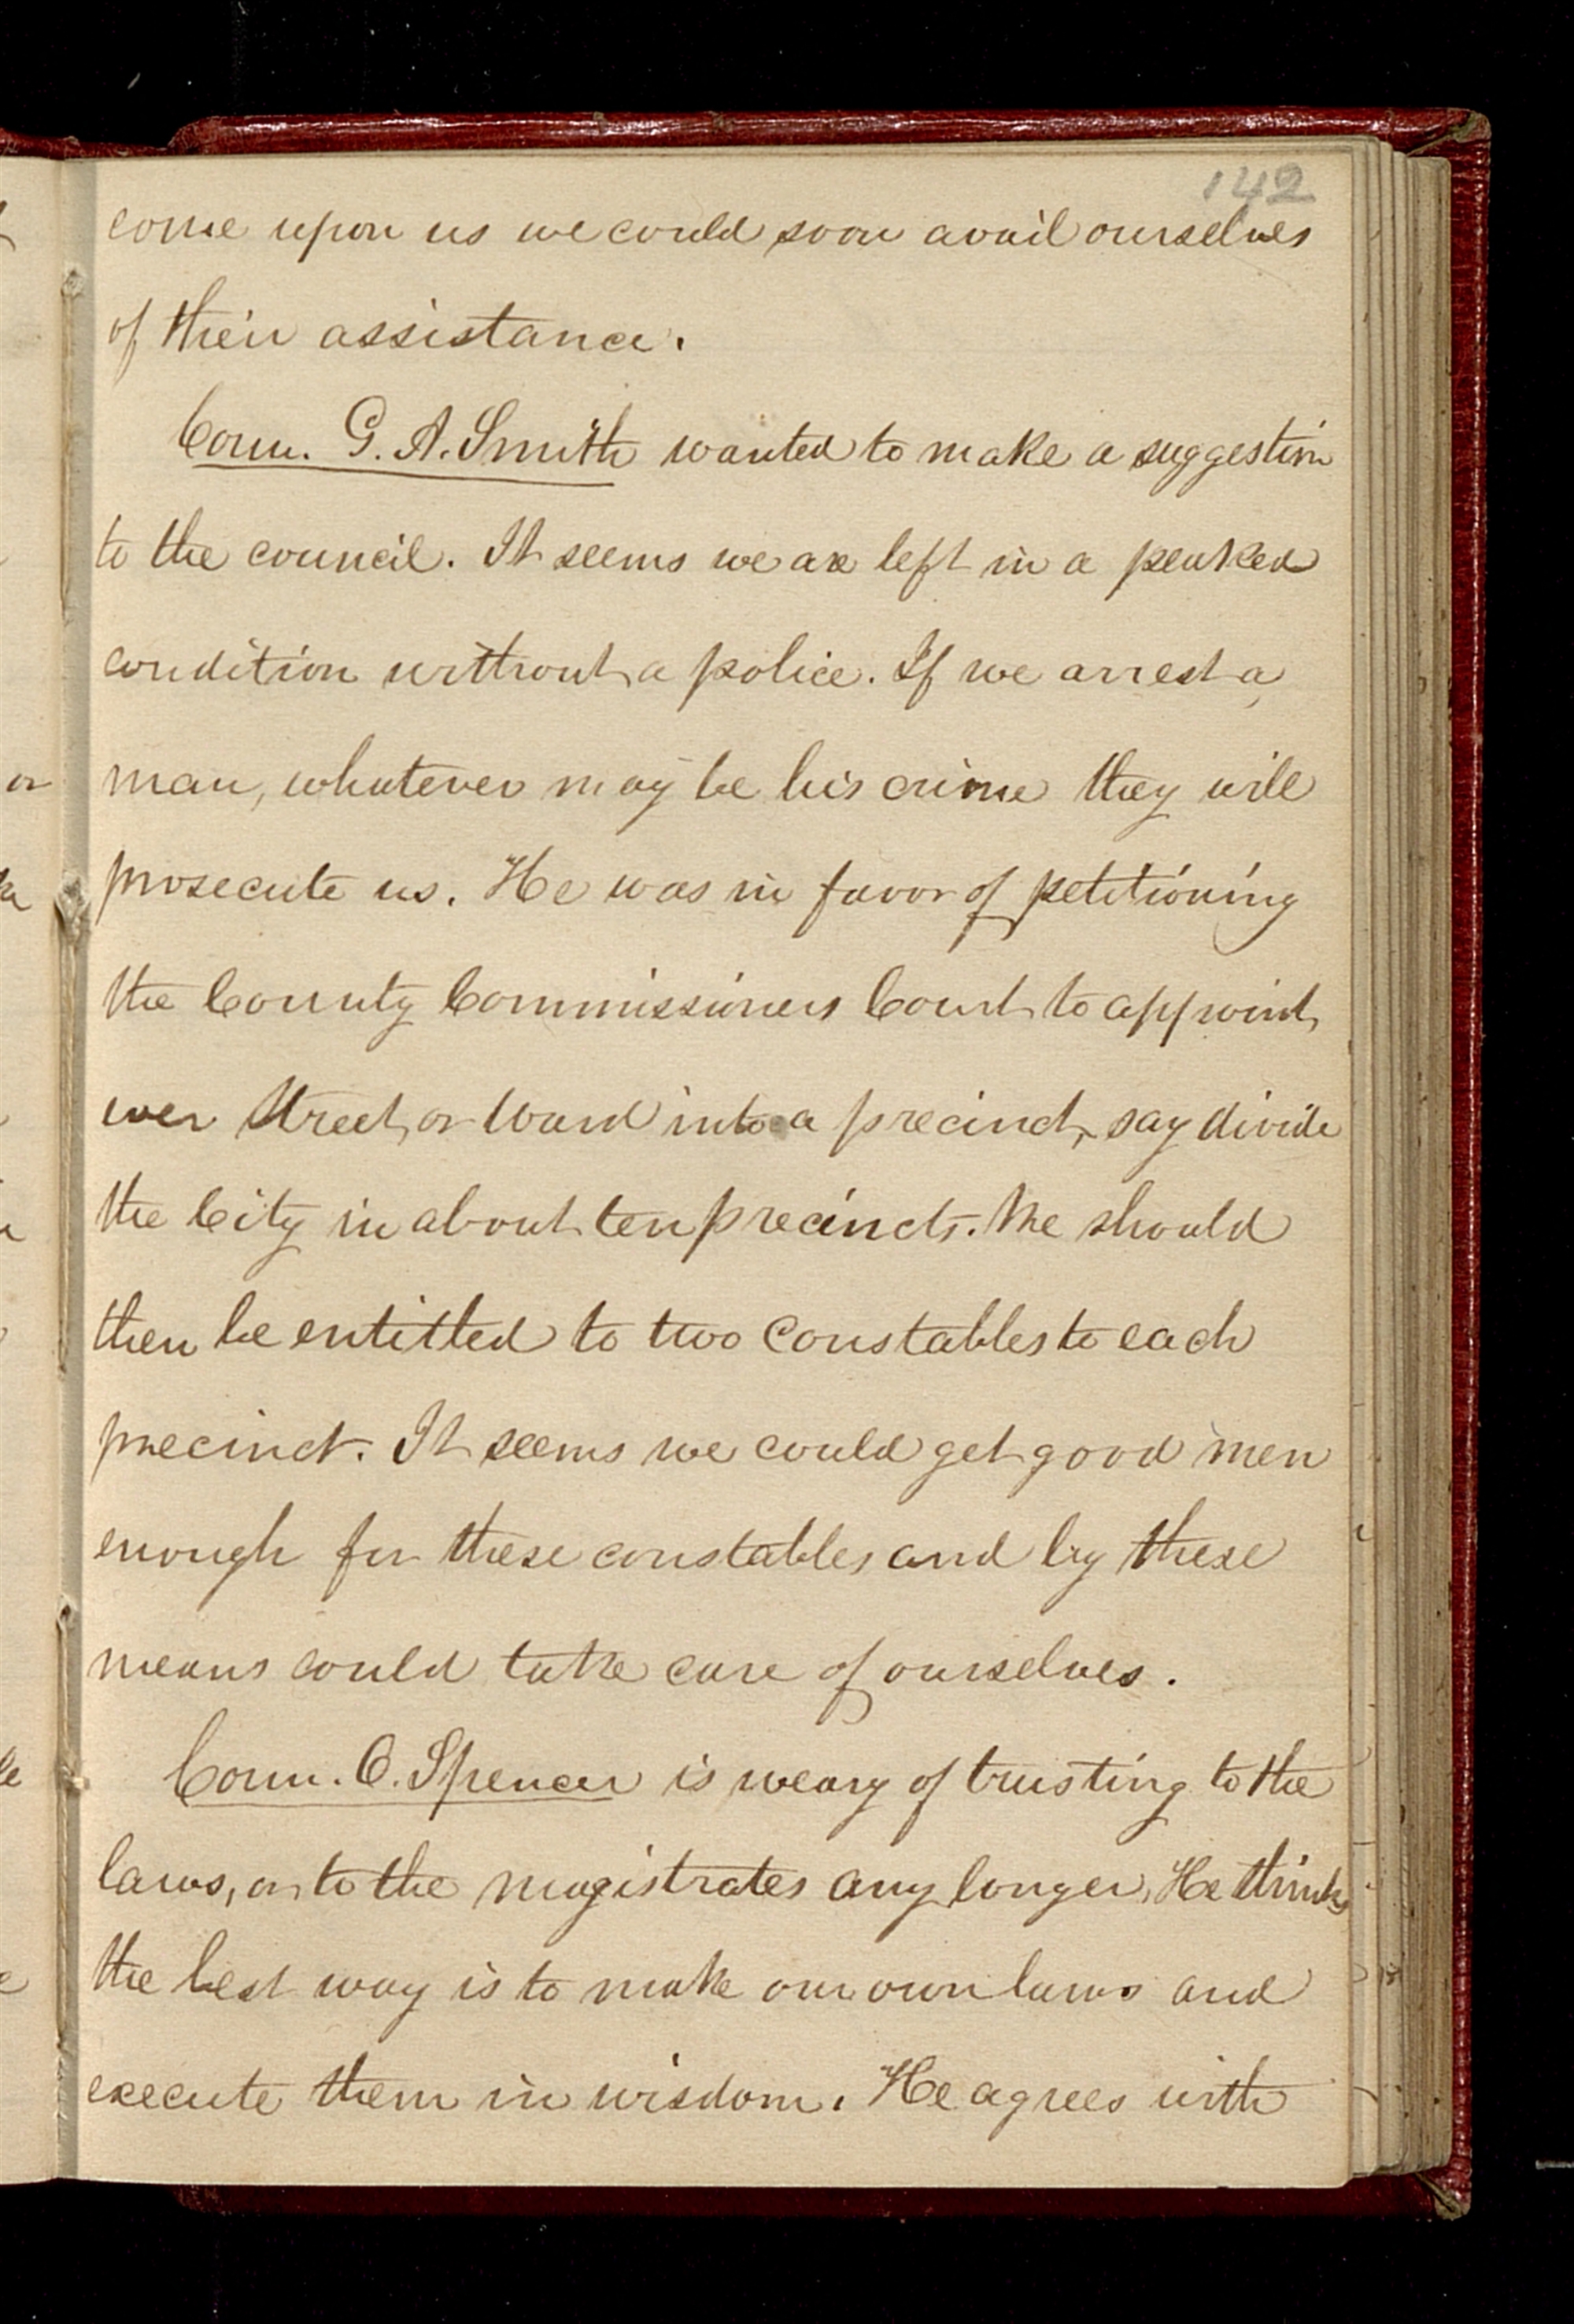 142
come upon us we could soon avail ourselves
of their assistance.
Coun. G. A. Smith wanted to make a suggestion
to the council. It seems we are left in a peaked
condition without a police. If we arrest a
man, whatever may be his crime they will
prosecute us. He was in favor of petitioning
the County Commissioners Court to appoint
ever street, or Ward into a precinct, say divide
the City in about ten precincts. We should
then be entitled to two constables to each
precinct. It seems we could get good men
enough for these constables and by these
means could take care of ourselves.
Coun. O. Spencer is weary of trusting to the
laws, or to the magistrates any longer, He thinks
the best way is to make our own laws and
execute them in wisdom. He agrees with